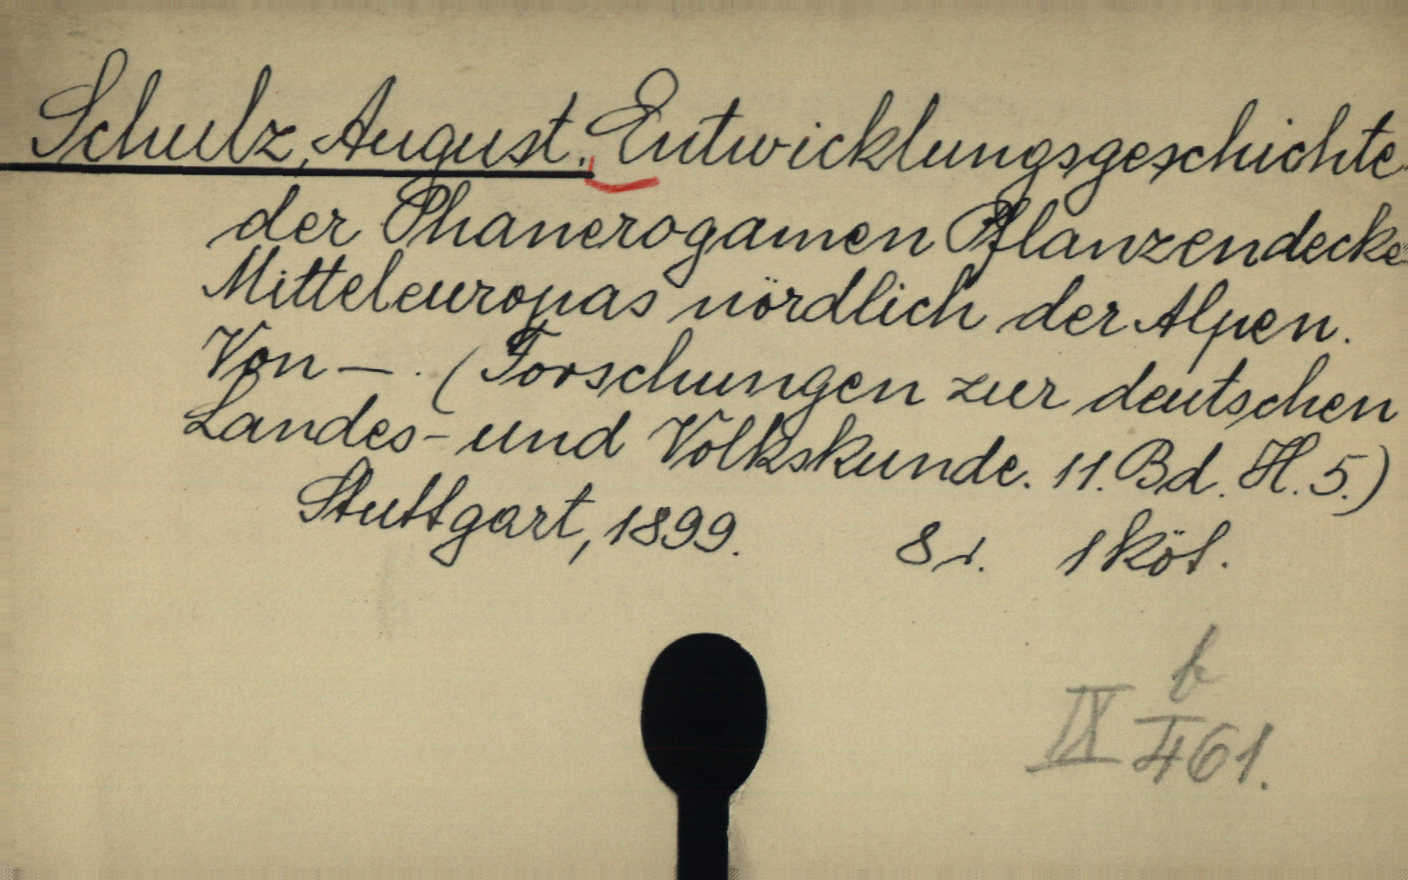 Schulz, August. Entwicklungsgeschichte
der Phanerogamen Pflanzendecke
Mitteleuropas nördlich der Alpen.
Von —. (Forschungen zur deutschen
Landes- und Volkskunde. 11. Bd. H. 5.)
Stuttgart, 1899. 8 r. 1 köt.
b
IX 461.